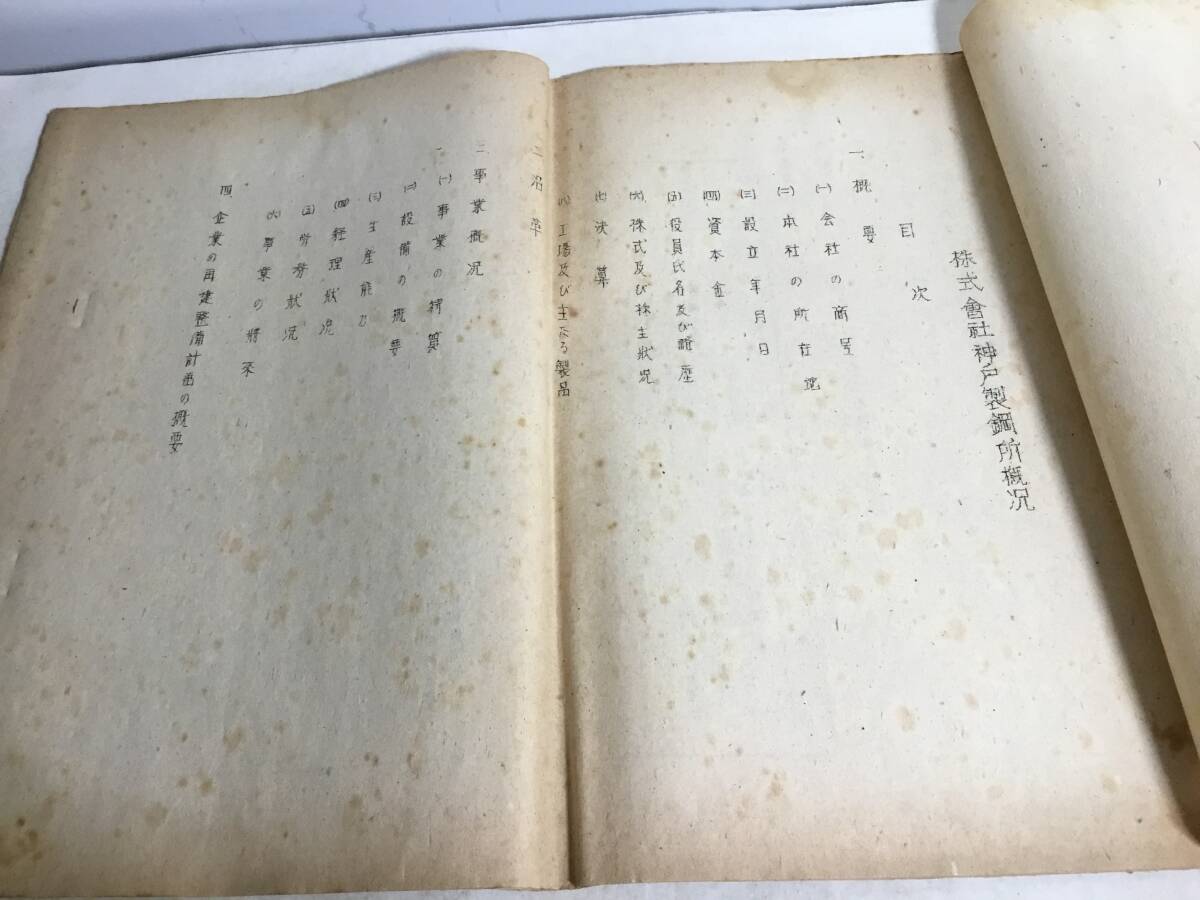 株式會社神戸製鋼所概况
目次
一、概要
㈠会社の商号
㈡本社の所在地
㈢設立年月日
㈣資本金
㈤役員氏名及び
㈥株式及び株主状况
㈦決算
㈧工場及び主なる製品
二沿革
事業概况
㈠事業の
㈡設備の概要
㈢生産能力
㈣経理状况
㈤労務状况
㈥事業の將来
四、企業の再建整備計画の概要